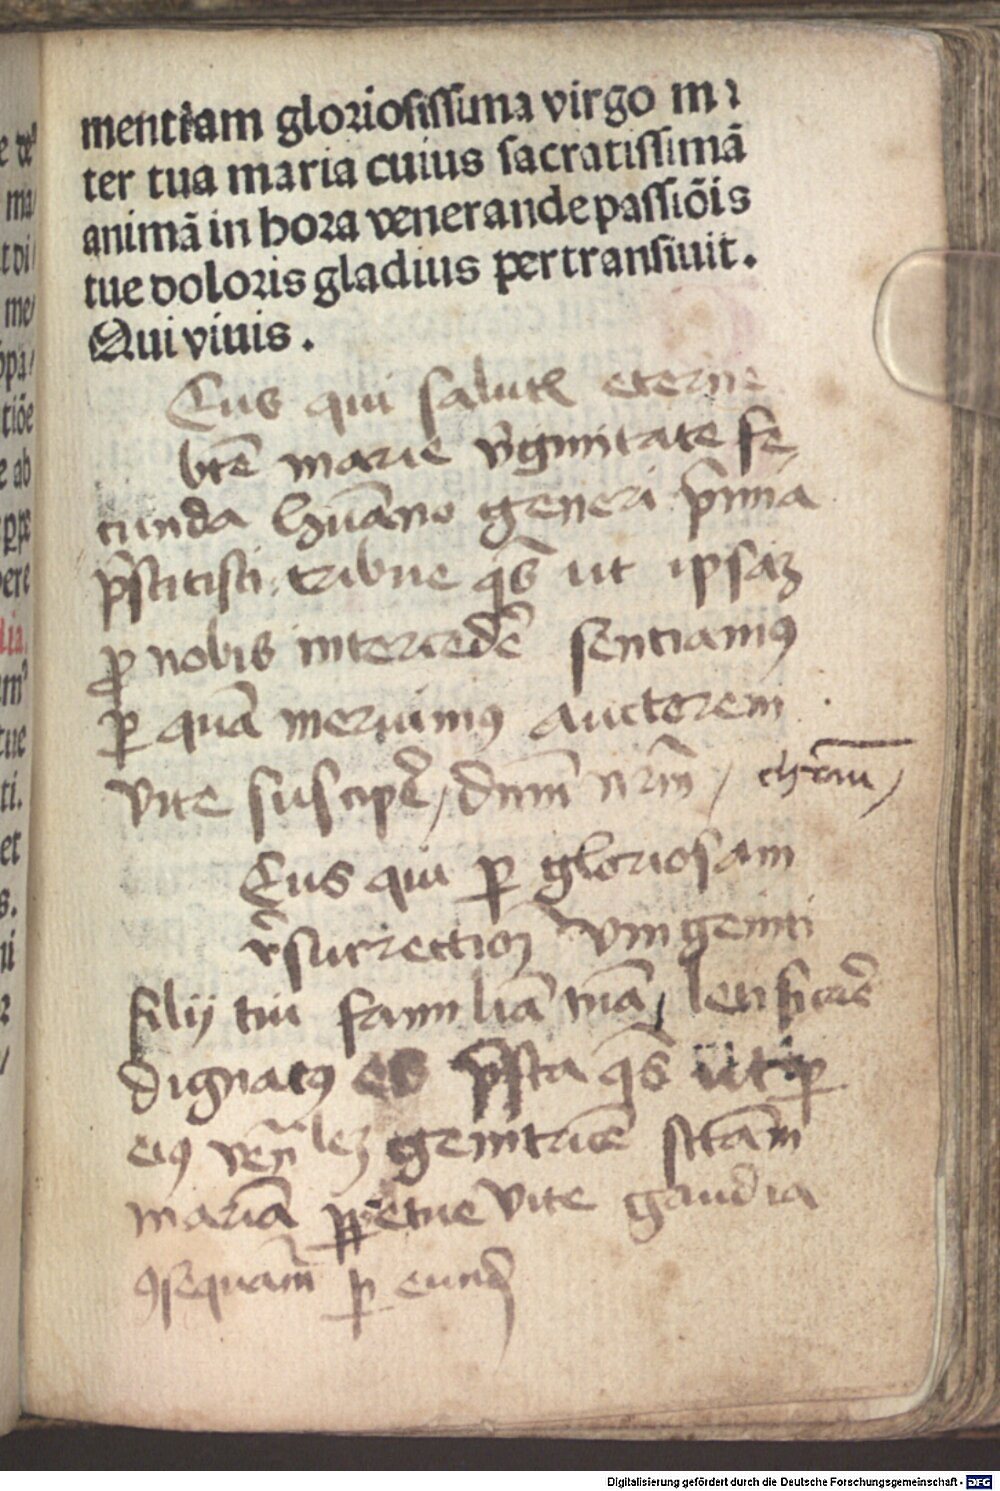 mentiam gloriosissima virgo ma
ter tua maria cuius sacratissimā
animā in hora venerande passiōis
tue doloris gladius pertransiuit.
Qui viuis.
Eus qui salutꝭ eterne
btē marie v̓ginitate fe
cunda hūano generi p̄mia
p̄stitisti tribue qs̄ ut ipsaꝫ
ꝓ nobis intercedē sentiamꝰ
ꝑ quā meruimꝰ auctorem
vite suscipe᷑, dnm̄ nrm̄ / chr̄m /
Eus qui ꝑ gloriosam
r̓surrectioꝫ vnigeniti
filij tui familiā tuā, letificar̄e
dignatꝰ es p̄sta qs̄ ut ꝑ
eiꝰ ven̄leꝫ genitricē sctām
mariā ꝑpetue vite gaudia
ꝯsequam̄ ꝑ eund̄
Digitalisierung gefördert durch die Deutsche Forschungsgemeinschaft - DFG